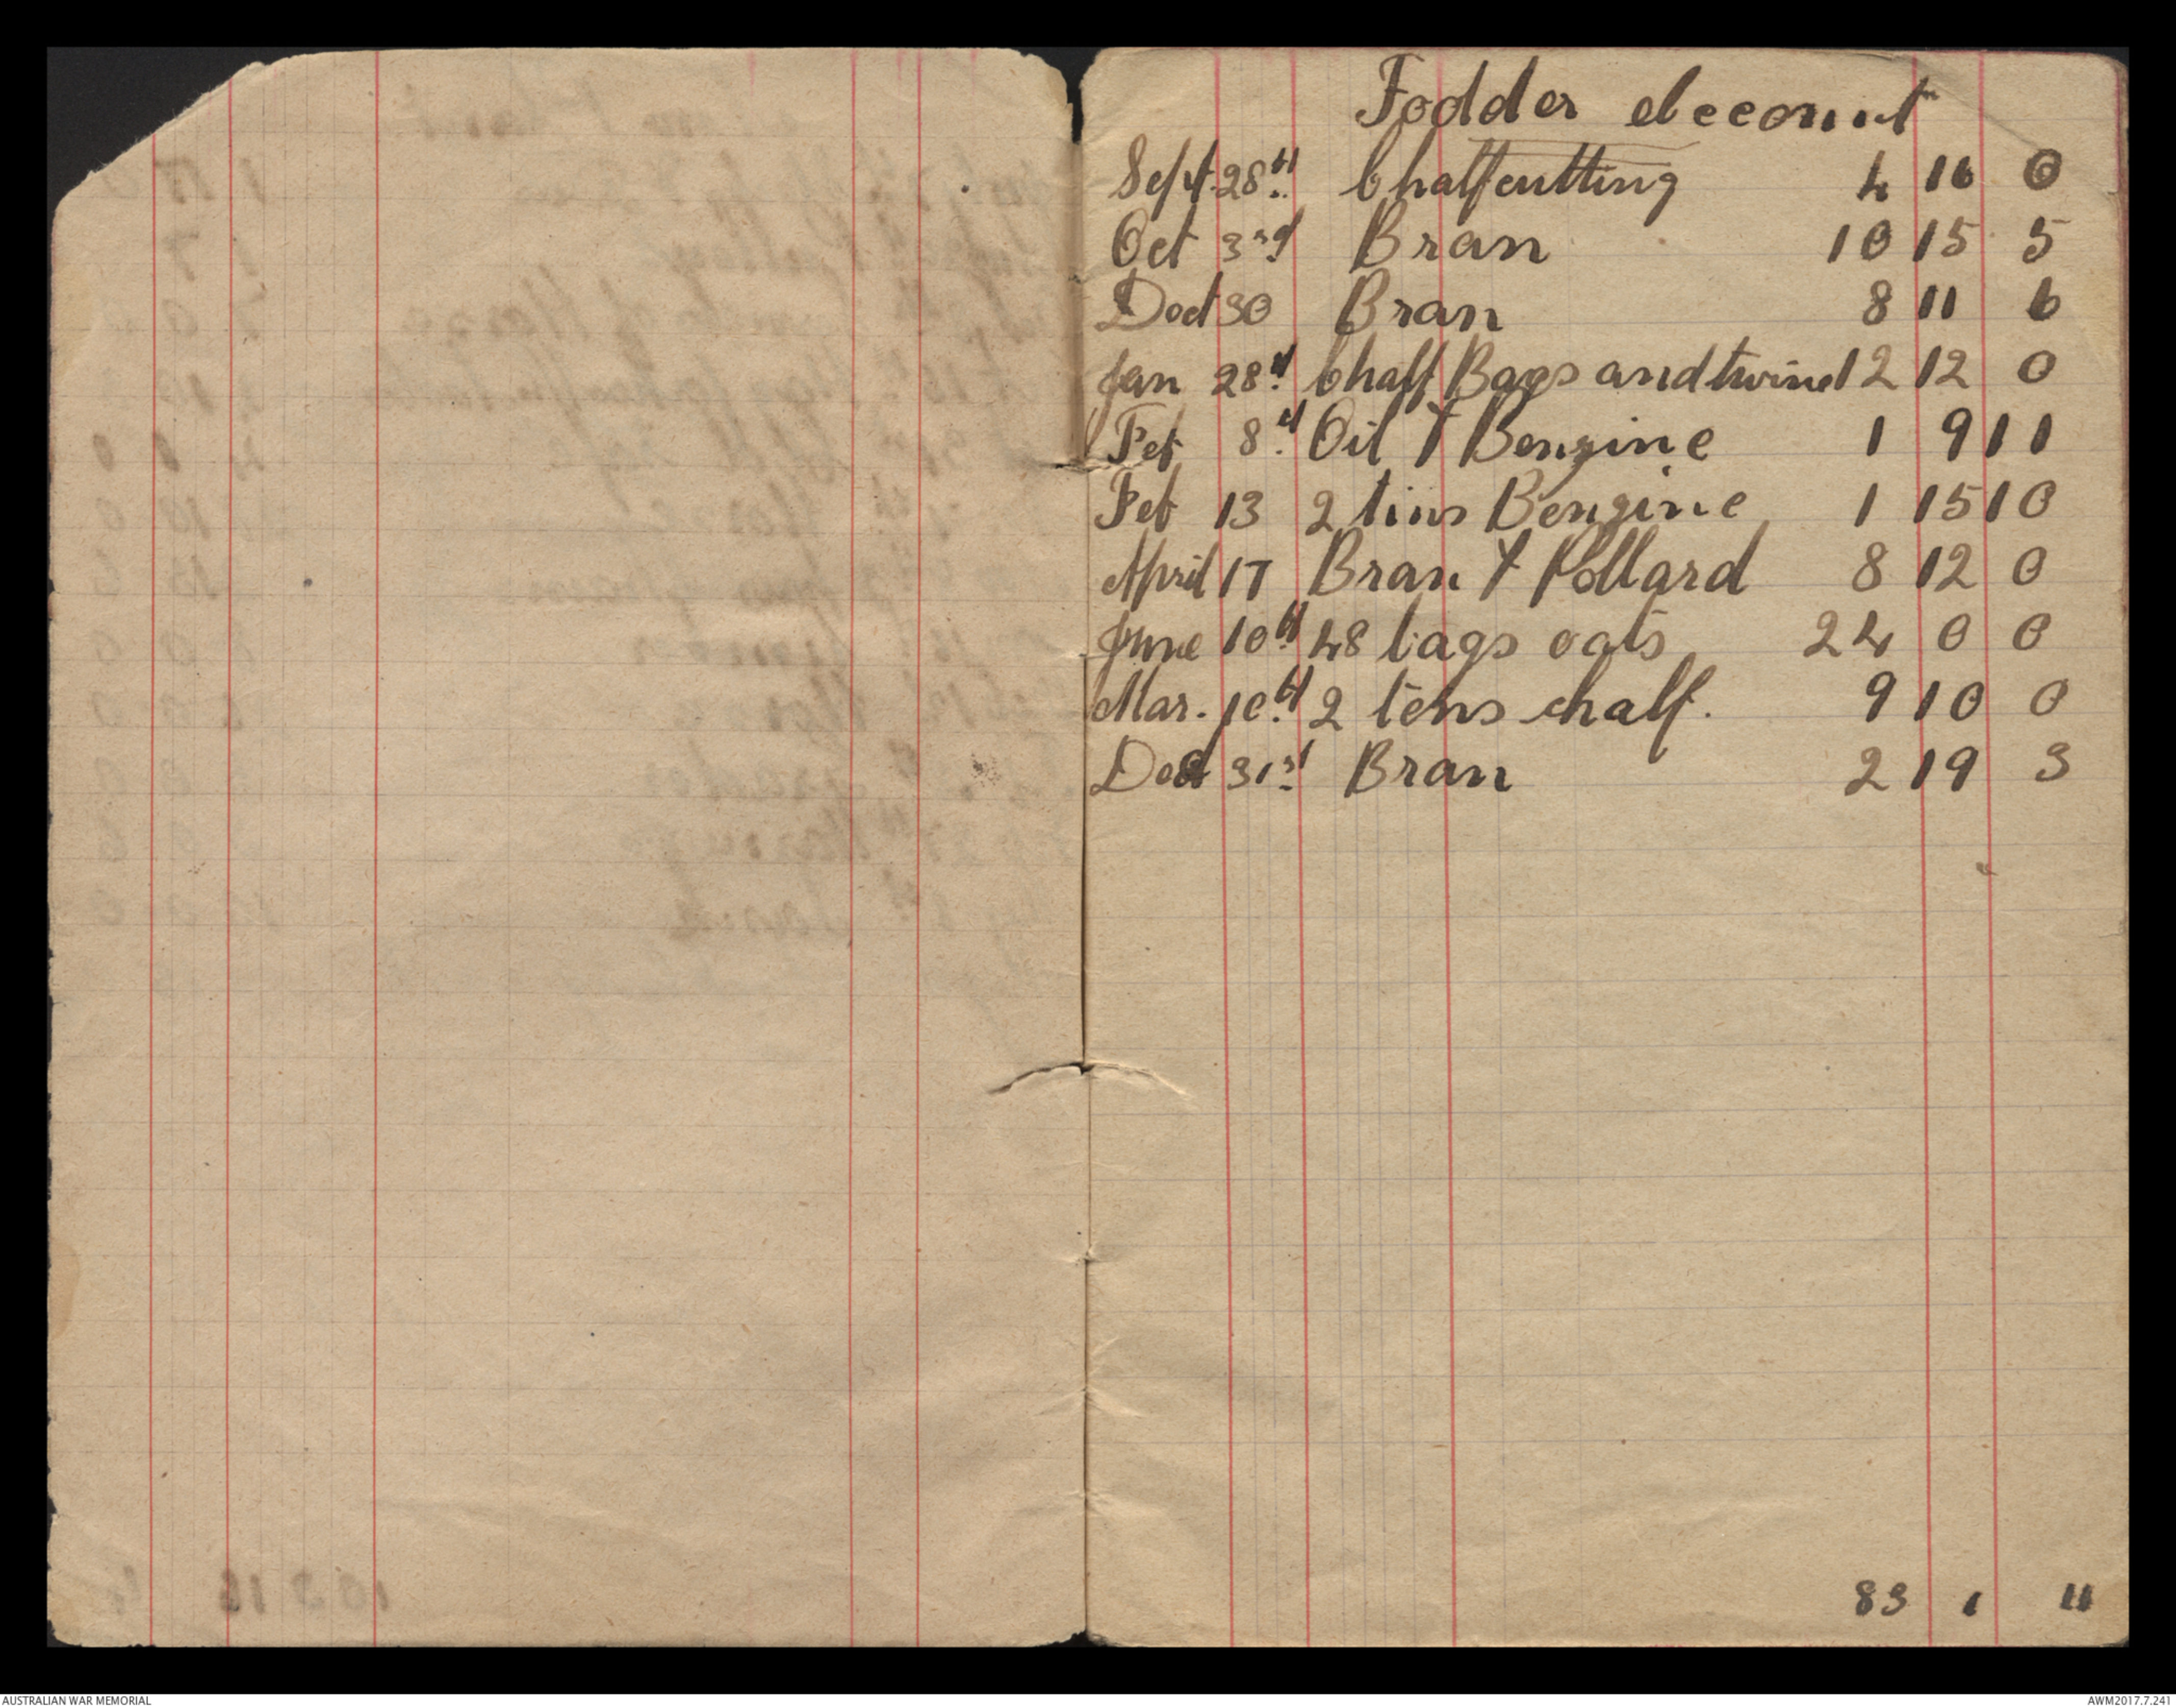 Fodder Account
Sept 28th Chaffcutting 4 16 0
Oct 3rd Bran 10 15 5
Dect 30 Bran 8 11 6
Jan 28th Chaff Bags and twine 12 12 0
Feb 8th Oil & Benzine 1 9 11
Feb 13 2 tins Benzine 1 15 10
April 17 Bran & Pollard 8 12 0
June 10th 48 bags oats 24 0 0
Mar. 10th 2 tons chaff. 9 10 0
Dect 31st Bran 2 19 3
83 1 11
AUSTRALIAN WAR MEMORIAL
AWM2017.7.241